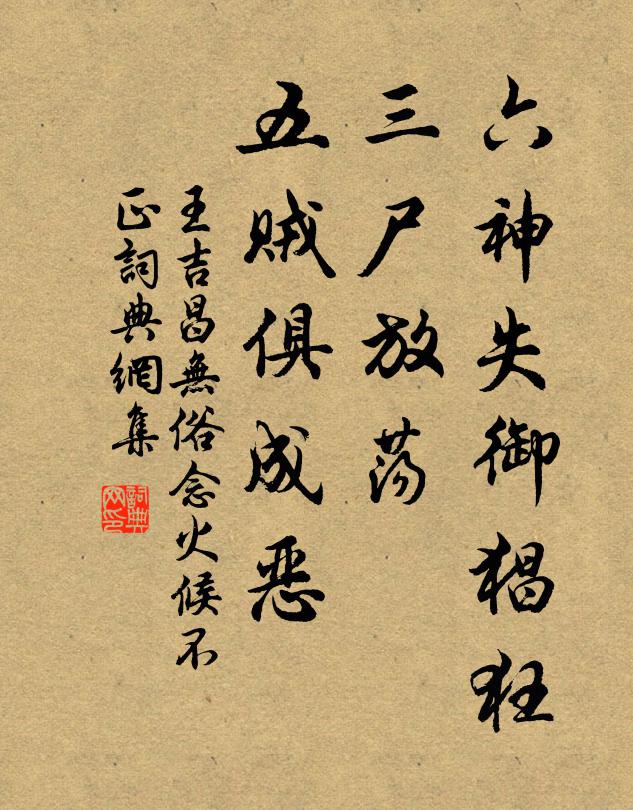 六神失御猖狂
三尸放荡
五贼俱成恶
王吉昌無俗念火候不
正詞典網集
詞典
网印